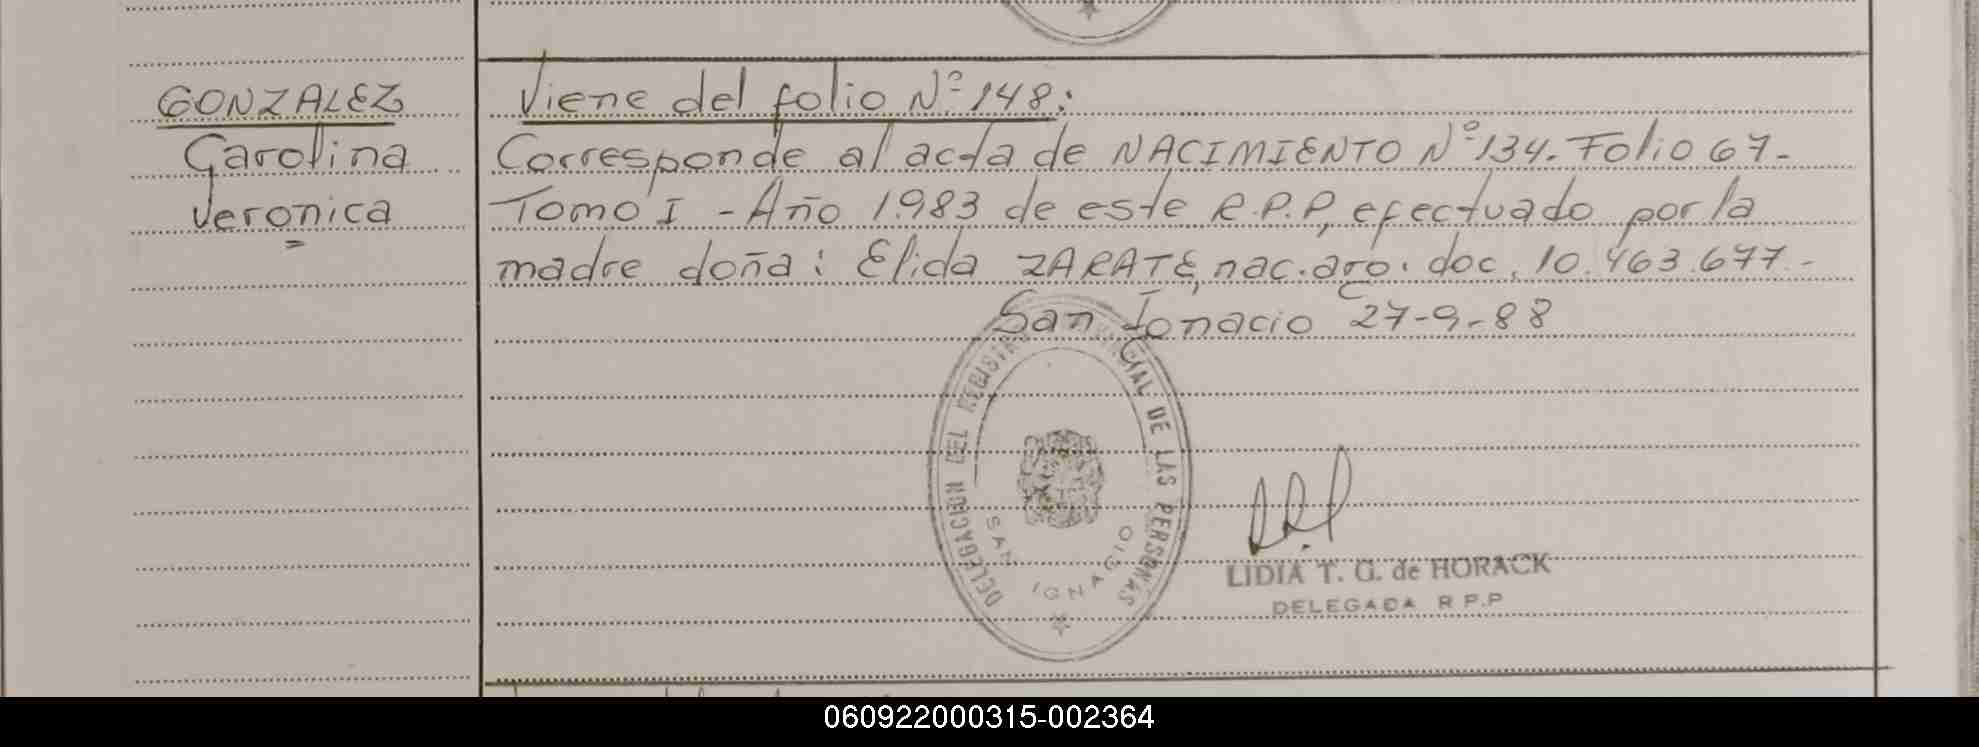 GONZALEZ
Carolina
Veronica
=
Viene del folio Nº 148:
Corresponde al acta de NACIMIENTO Nº 134. Folio 67-
Tomo I - Año 1.983 de este R.P.P, efectuado por la
madre doña: Elida ZARATE, nac. arg. doc. 10.463.677.-
San Ignacio 27-9-88
DELEGACION DEL REGISTRO PROVINCIAL DE LAS PERSONAS
SAN IGNACIO
LIDIA T. G. de HORACK
DELEGADA R.P.P
060922000315-002364